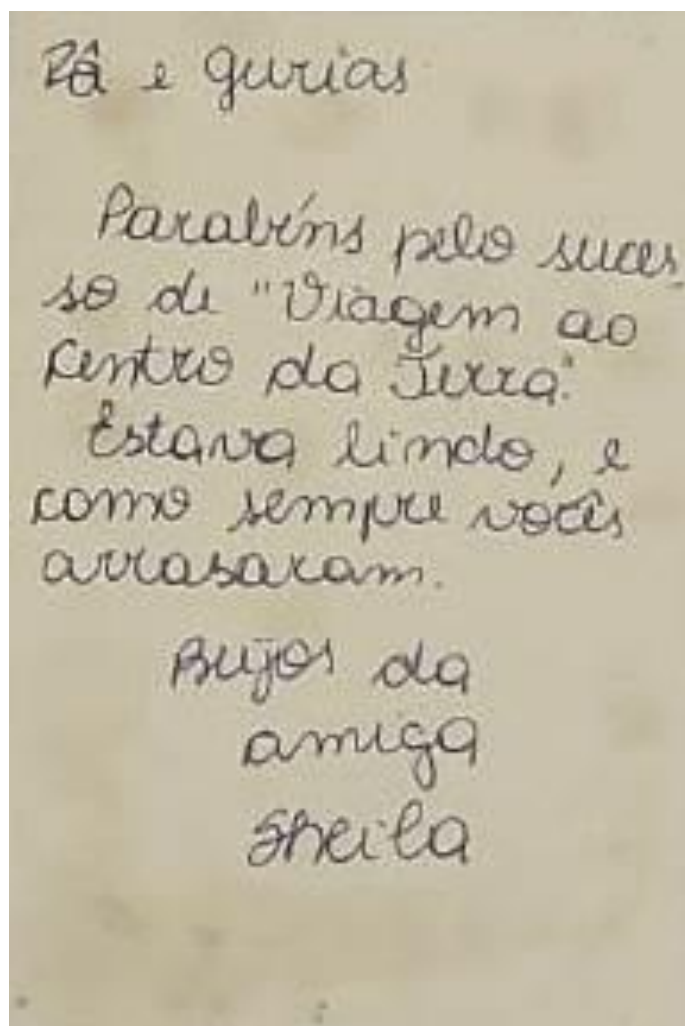 Râ e gurias
Parabéns pelo suces-
so de "Viagem ao
centro da Terra".
Estava lindo, e
como sempre vocês
arrasaram.
Beijos da
amiga
Sheila